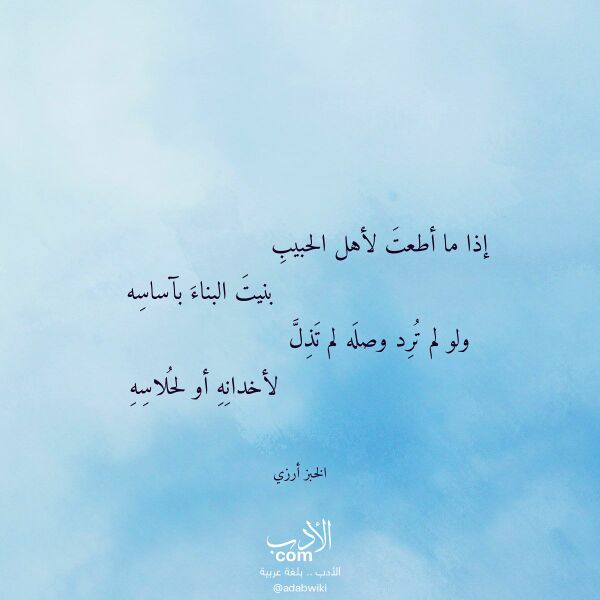 إذا ما أطعتَ لأهل الحبيبِ
بنيتَ البناءَ بآساسِه
ولو لم تُرِد وصلَه لم تَذِلَّ
لأخدانِهِ أو لحُلاسِهِ
الخبز أرزي
الأدب
com
الأدب .. بلغة عربية
@adabwiki